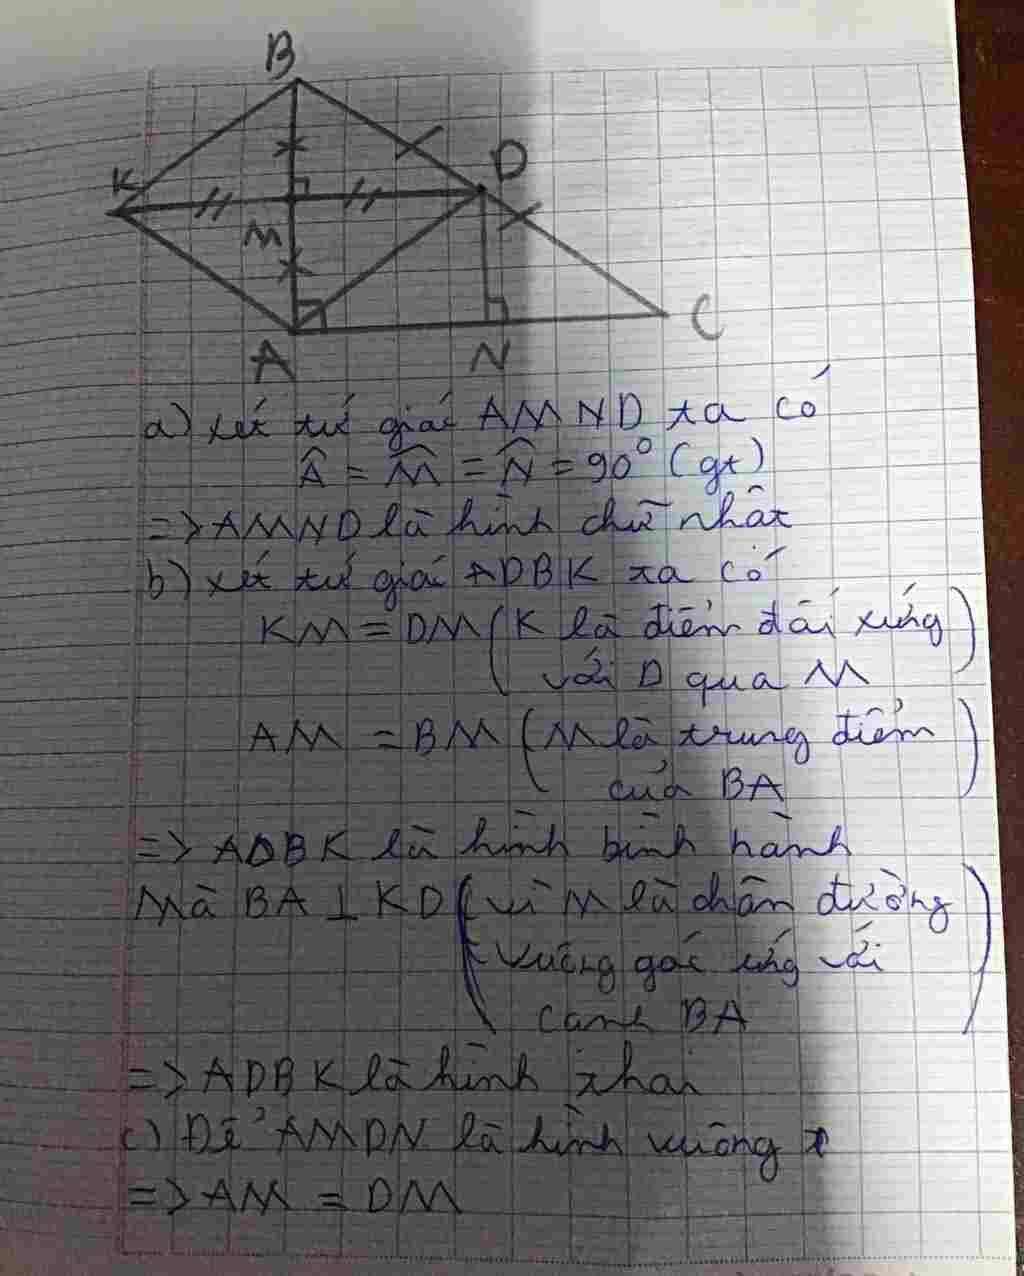 B
K
D
M
A
N
C
a) xét tứ giác AMND ta có
Â = M̂ = N̂ = 90° (gt)
=> AMND là hình chữ nhật
b) xét tứ giác ADBK ta có
KM = DM (K là điểm đối xứng
với D qua M)
AM = BM (M là trung điểm
của BA)
=> ADBK là hình bình hành
Mà BA ⊥ KD (vì M là chân đường
vuông góc ứng với
cạnh BA)
=> ADBK là hình thoi
c) Để AMDN là hình vuông t
=> AM = DM